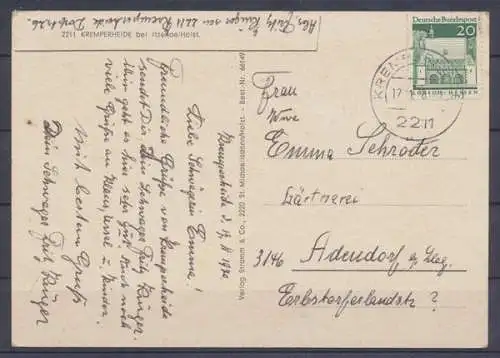 Abs. Fritz Krüger sen 2211 Kremperheide Dorfstr. 26
2211 KREMPERHEIDE bei Itzehoe/Holst.
Kremperheide d. 17. 11 1970
Liebe Schwägerin Emma!
Freundliche Grüße von Kremperheide
sendet Dir Dein Schwager Fritz Krüger.
Uns geht es hier sehr gut. Auch noch
viele Grüße an Klaus, und Kinder.
Mit besten Gruß
Dein Schwager Fritz Krüger
Verlag Stramm & Co., 2220 St. Michaelisdonn/Holst. - Best. Nr.
Deutsche Bundespost
20
LORSCH HESSEN
KREM
2211
Frau
Wwe
Emma Schröder
Gärtnerei
3146 Adendorf
Erbstorferlandstr ?